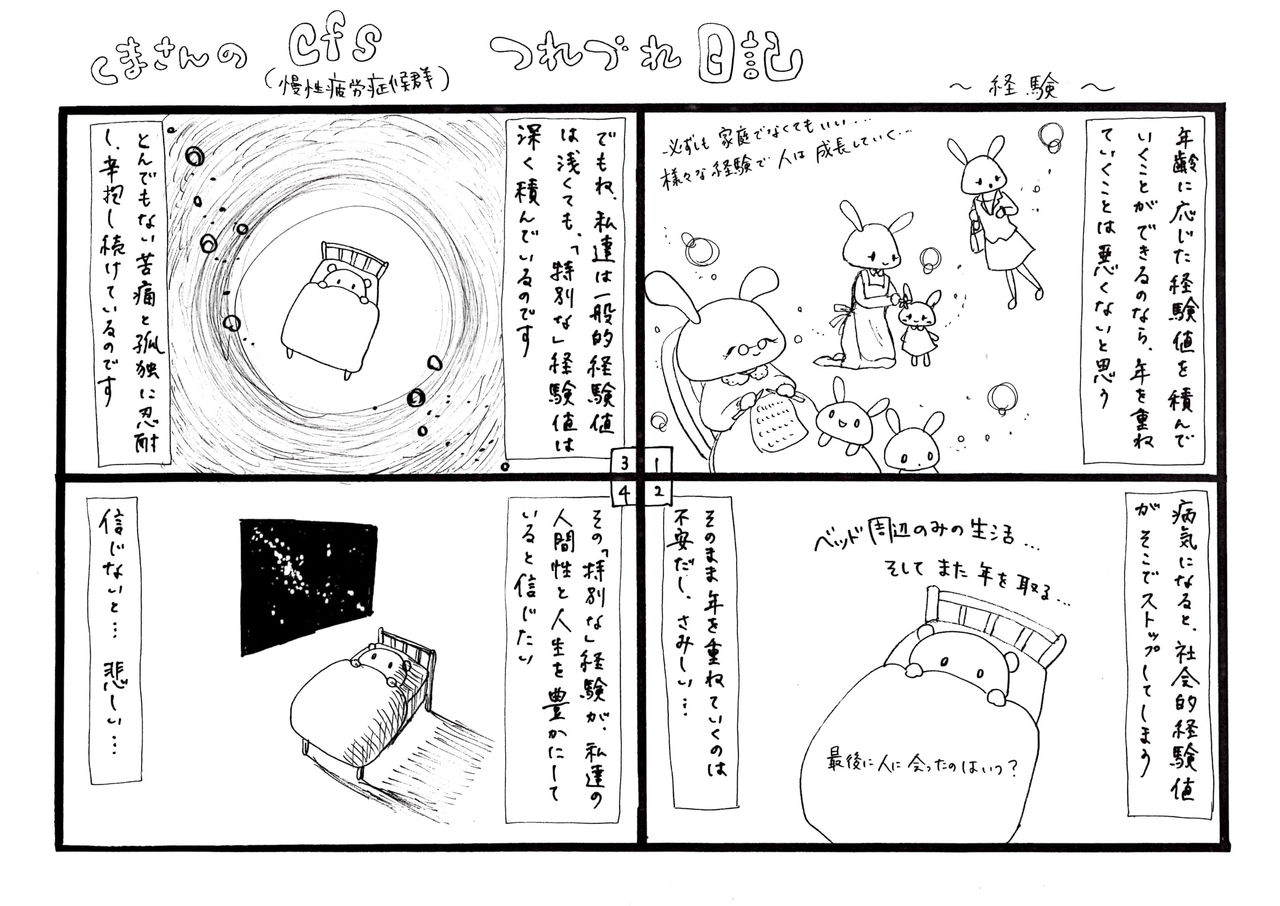 くまさんの cfs つれづれ日記
(慢性疲労症候群)
～ 経験 ～
年齢に応じた経験値を積んで
いくことができるのなら、年を重ね
ていくことは悪くないと思う
必ずしも 家庭でなくてもいい…
様々な経験で 人は 成長していく…
1
病気になると、社会的経験値
が そこでストップしてしまう
ベッド周辺のみの生活…
そして また 年を取る…
最後に人に会ったのはいつ?
そのまま年を重ねていくのは
不安だし、さみしい…
2
でもね、私達は一般的経験値
は浅くても、「特別な」経験値は
深く積んでいるのです
とんでもない苦痛と孤独に忍耐
し、辛抱し続けているのです
3
その「特別な」経験が、私達の
人間性と人生を豊かにして
いると信じたい
信じないと… 悲しい…
4